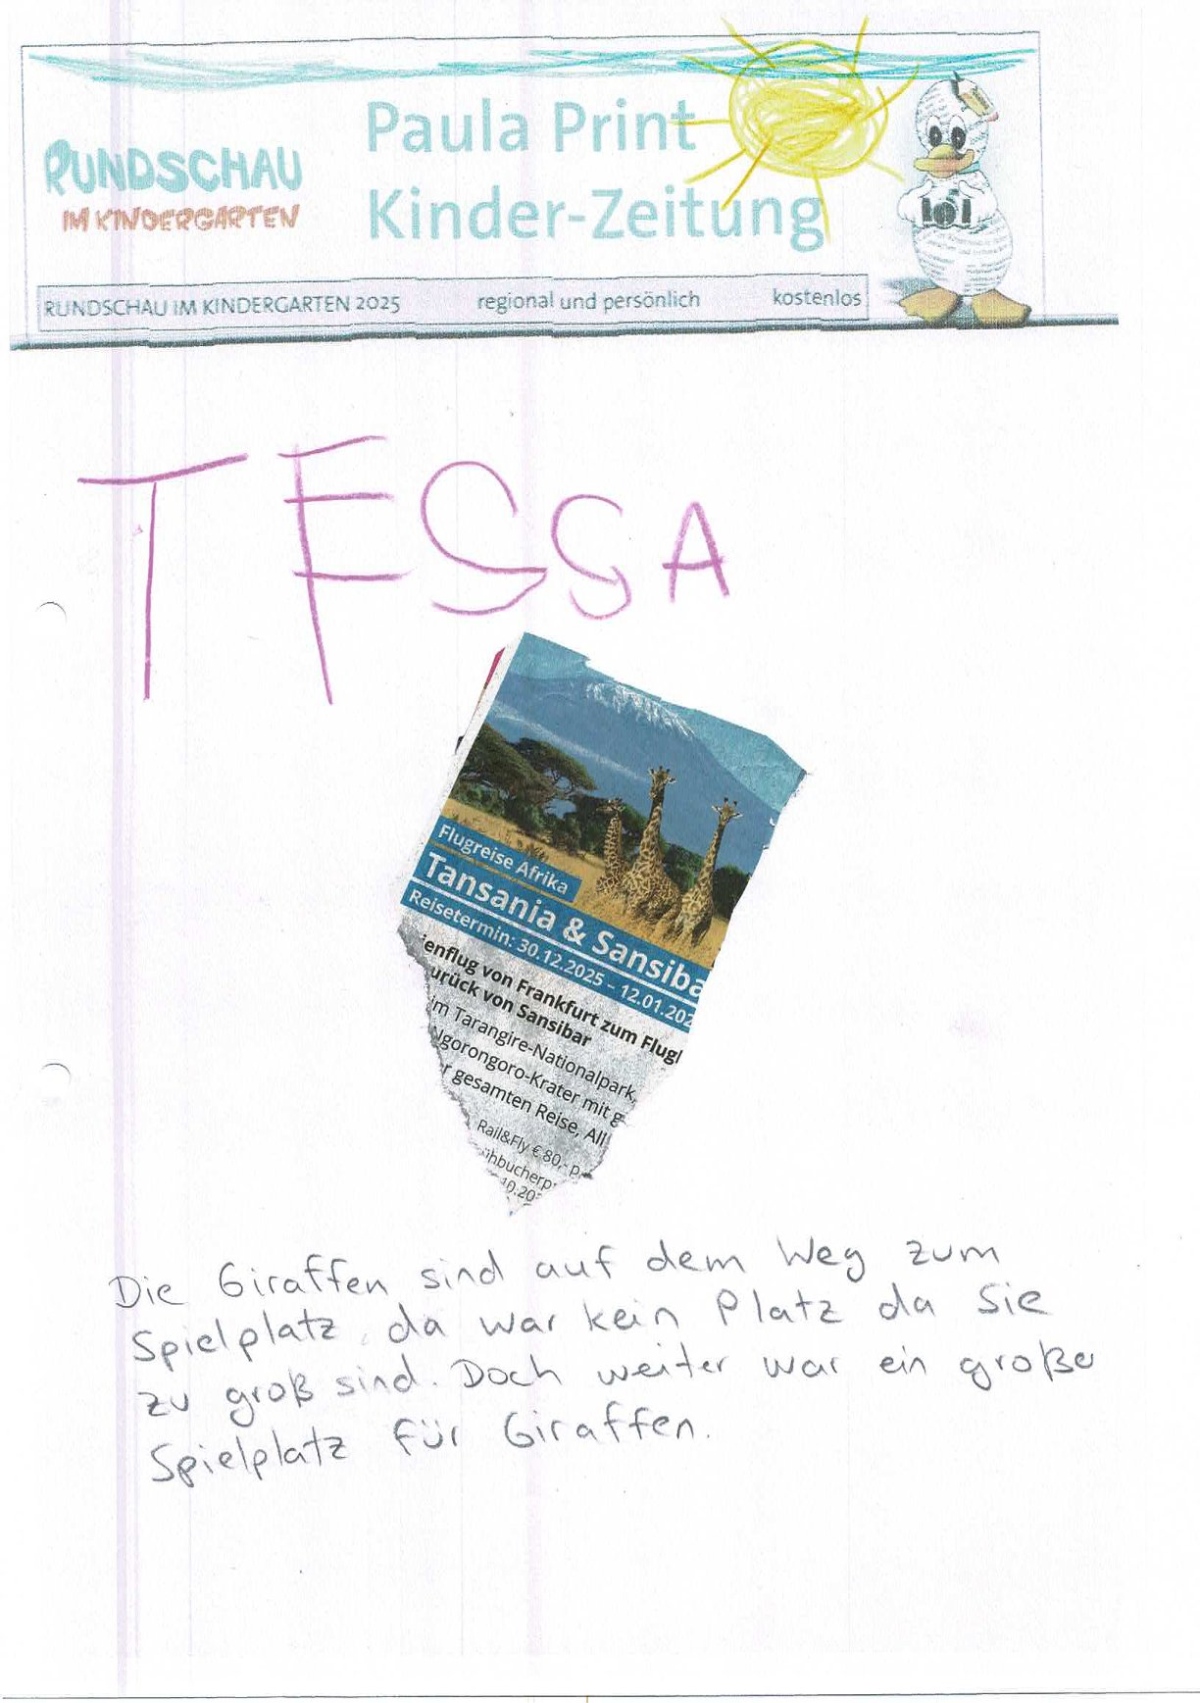 RUNDSCHAU
IM KINDERGARTEN
Paula Print
Kinder-Zeitung
RUNDSCHAU IM KINDERGARTEN 2025 regional und persönlich kostenlos
TESSA
Flugreise Afrika
Tansania & Sansiba
Reisetermin: 30.12.2025 - 12.01.202
enflug von Frankfurt zum Flugh
urück von Sansibar
im Tarangire-Nationalpark,
Ngorongoro-Krater mit g
r gesamten Reise, All
Rail&Fly € 80,- p.
hbucherp
10.20
Die Giraffen sind auf dem Weg zum
Spielplatz, da war kein Platz da Sie
zu groß sind. Doch weiter war ein große
Spielplatz für Giraffen.